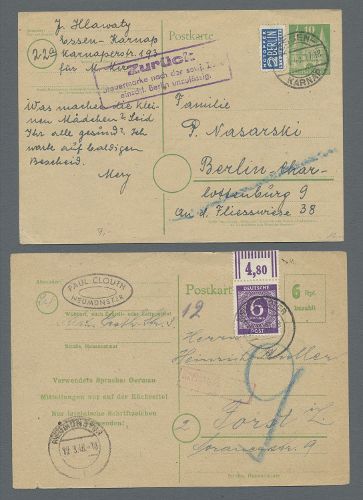 J. Hlawaty
Essen-Karnap
Karnaperstr. 193
für M. 
22a
Zurück
Steuermarke nach der sowj. Z
einschl. Berlin unzulässig.
NOTOPFER
2 BERLIN
STEUERMARKE
Postkarte
KARNAP
Was machen die klei-
nen Mädchen? Seid
Ihr alle gesund? Ich
warte auf baldigen
Bescheid.
Mery
Familie
P. Nasarski
Berlin Char-
lottenburg 9
An d. Fliesswiese 38
Absender:
PAUL CLOUTH
NEUMÜNSTER
Wohnort, auch Zustell- oder Leitpostamt
Straße, Hausnummer
Verwendete Sprache: German
Mitteilungen nur auf der Rückseite!
Nur lateinische Schriftzeichen
NEUMÜNSTER
12.3.46.-18
Postkarte
4,80
DEUTSCHE
6
POST
6 Rpf.
bezahlt
12
9
Herrn
Heinrich
2
Forst i/L
Straße, Hausnummer